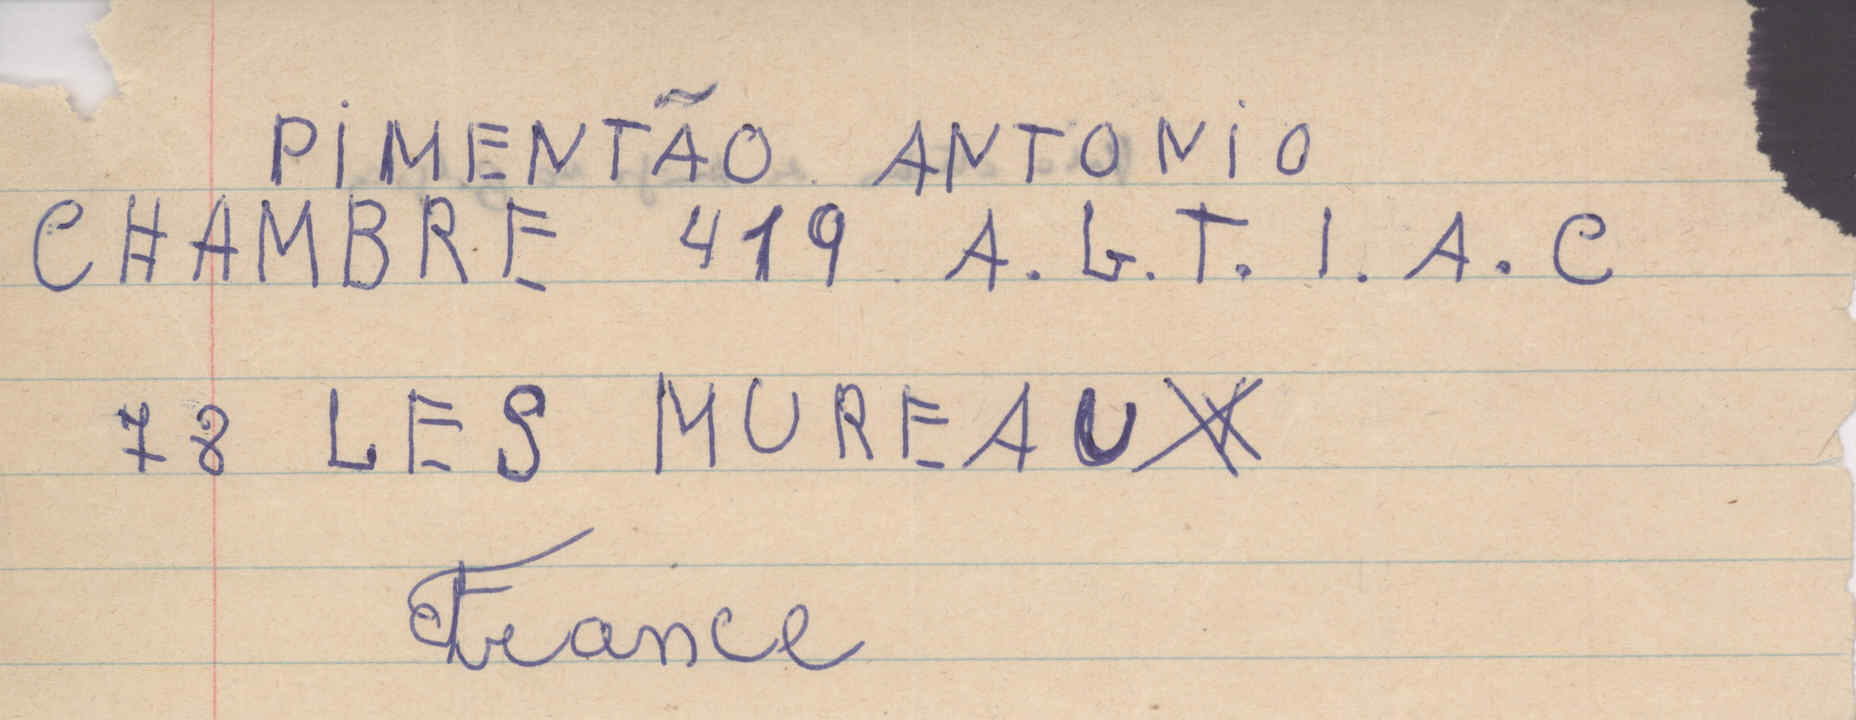 PIMENTÃO ANTONIO
CHAMBRE 419 A.G.T.I.A.C
78 LES MUREAUX
France